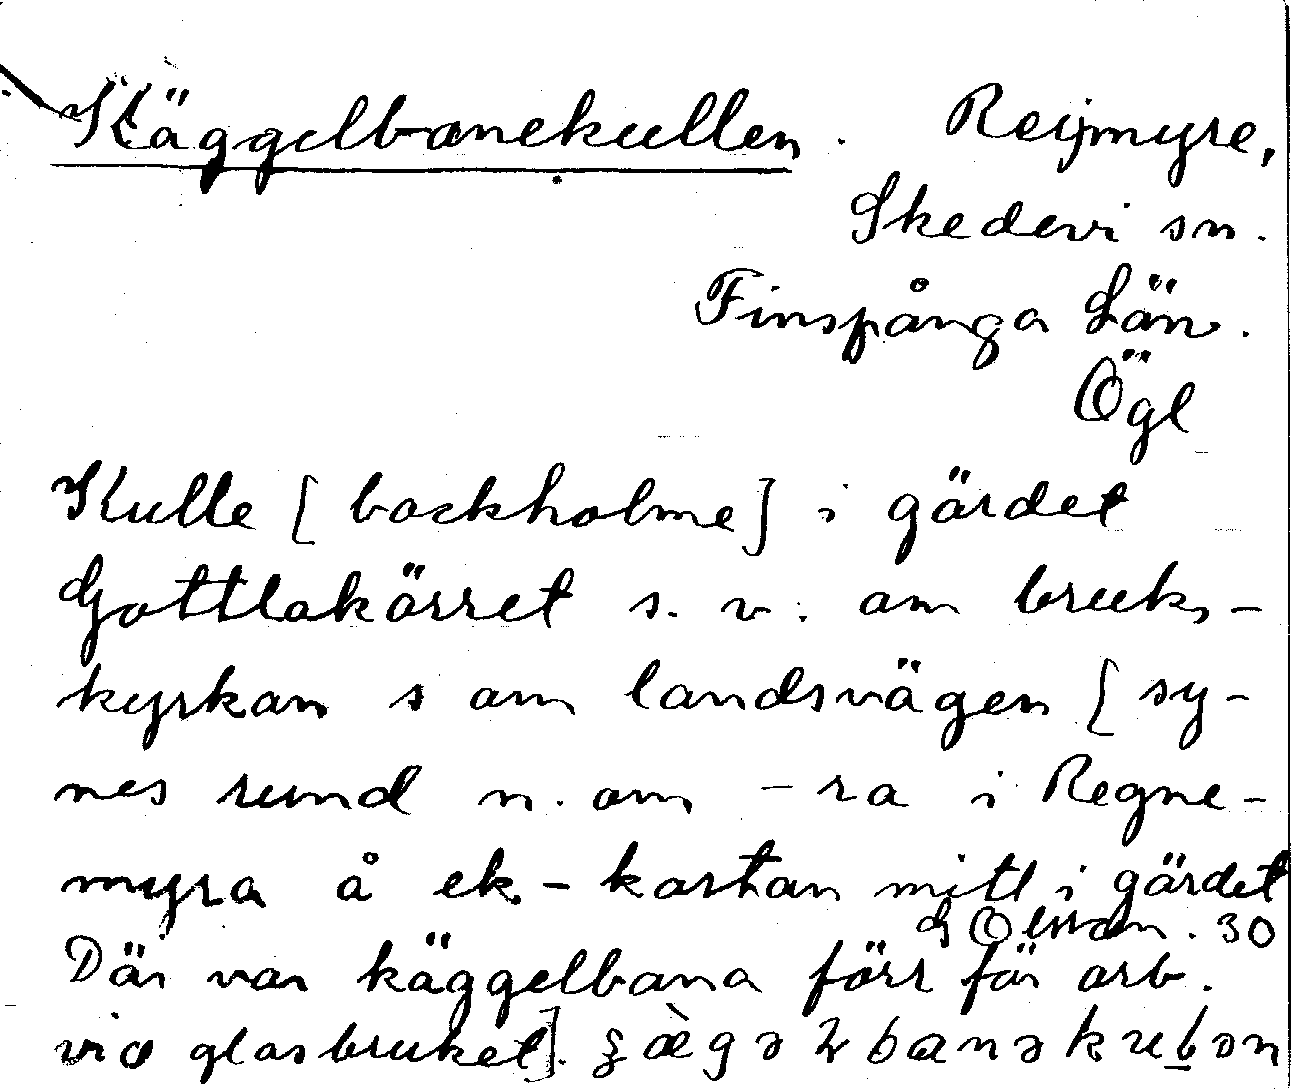 Käggelbanekullen. Reijmyre,
Skedevi sn.
Finspånga Län.
Ögl
Kulle [backholme] i gärdet
Gottlakärret s.v. om bruks-
kyrkan s om landsvägen [sy-
nes rund n. om -ra i Regne-
myra å ek-kartan mitt i gärdet
G Olsson. 30
Där var käggelbana förr för arb.
vid glasbruket].